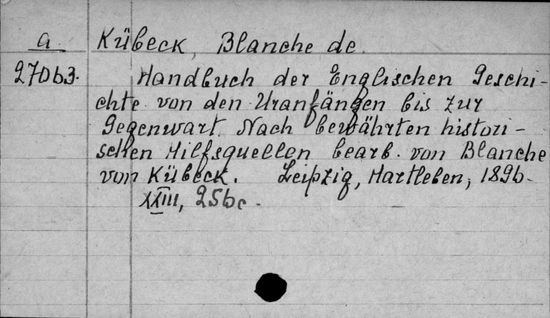 a. Kübeck, Blanche de.
27063. Handbuch der Englischen Geschi-
chte von den Uranfängen bis zur
Gegenwart. Nach bewährten histori-
schen Hilfsquellen bearb. von Blanche
von Kübeck. Leipzig, Hartleben, 1896.
XXIII, 256c.